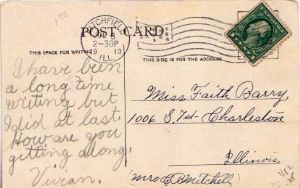 LITCHFIELD
2-30P
1913
ILL.
POST CARD
THIS SPACE FOR WRITING
THIS SIDE IS FOR THE ADDRESS
I have been
a long time
writing but
I did at last.
How are you
getting along.
Vivian.
Miss Faith Barry
1006 S. 7st Charleston
Illinois
Mrs C B Mitchell